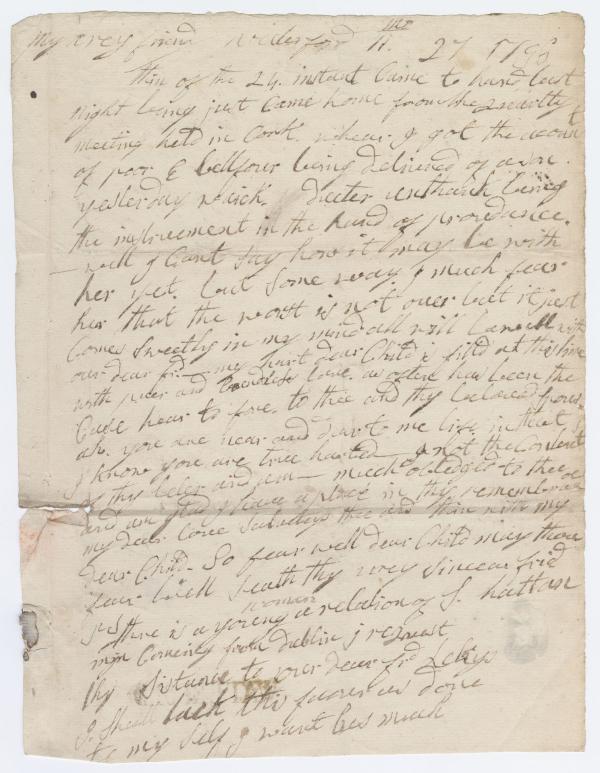 my very friend Widerford 11 mo 27 1798
thin of the 24. instant Came to hand last
night being just Came home from the Quartly
meeting held in Cork. whear I got the acount
of poor E bellfour being delivred of a
yesterday week. Docter unthank being
the instruement in the hand of providance.
- well I Cant Say how it may be with
her yet. but Some way I much fear
her that the worst is not over but it just
Comes Sweetly in my mind all will be well with
our dear frd - my hart dear Child is fild at this time
with puer and love. as often has been the
Case hear to fore. to thee and thy beloved
ah. you are near and dear to me life in that
I know you are true harted - I not the Content
of thy leter and am - much obledged to thee
and am glad I have a place in thy remembrance
my dear love Saluteds thee and thin with my
Dear Child. So fear well dear Child may thou
fear well Seath thy very Sincear frid
ps thire is a young woman a relation of S. hattan
min Comeing from dublin j request
thy Sistance to your dear frd
I Shall tack this favor as done
to my Self I want hes much